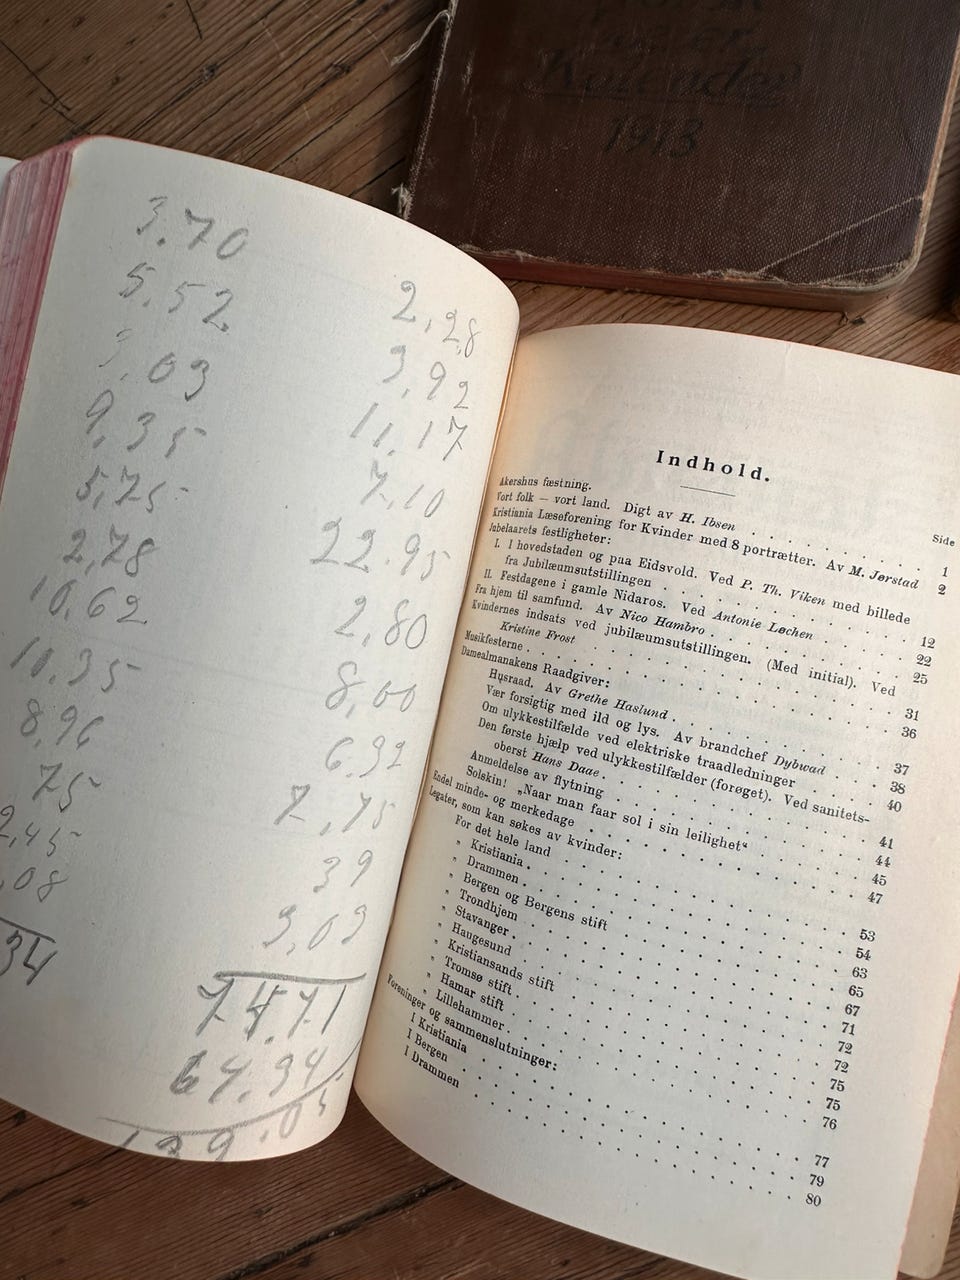 Kalender
1913
3.70
5.52
3,03
9,35
5,75
2,78
10,62
11,35
8,96
75
2,45
,08
34
2,28
3,92
11,17
7,10
22.95
2,80
8,00
6.92
7,75
39
3,03
74.71
64.34
139.05
Indhold.
Side
Akershus fæstning.
Vort folk — vort land. Digt av H. Ibsen . . . 1
Kristiania Læseforening for Kvinder med 8 portrætter. Av M. Jørstad 2
Jubelaarets festligheter:
I. I hovedstaden og paa Eidsvold. Ved P. Th. Viken med billede
fra Jubilæumsutstillingen . . . 12
II. Festdagene i gamle Nidaros. Ved Antonie Løchen . . . 22
Fra hjem til samfund. Av Nico Hambro . . . 25
Kvindernes indsats ved jubilæumsutstillingen. (Med initial). Ved
Kristine Frost . . . 31
Musikfesterne . . . 36
Damealmanakens Raadgiver:
Husraad. Av Grethe Haslund . . . 37
Vær forsigtig med ild og lys. Av brandchef Dybwad . . . 38
Om ulykkestilfælde ved elektriske traadledninger . . . 40
Den første hjælp ved ulykkestilfælder (forøget). Ved sanitets-
oberst Hans Daae . . . 41
Anmeldelse av flytning . . . 44
Solskin! „Naar man faar sol i sin leilighet“ . . . 45
Endel minde- og merkedage . . . 47
Legater, som kan søkes av kvinder:
For det hele land . . . 53
„ Kristiania . . . 54
„ Drammen . . . 63
„ Bergen og Bergens stift . . . 65
„ Trondhjem . . . 67
„ Stavanger . . . 71
„ Haugesund . . . 72
„ Kristiansands stift . . . 72
„ Tromsø stift . . . 75
„ Hamar stift . . . 75
„ Lillehammer . . . 76
Foreninger og sammenslutninger:
I Kristiania . . . 77
I Bergen . . . 79
I Drammen . . . 80